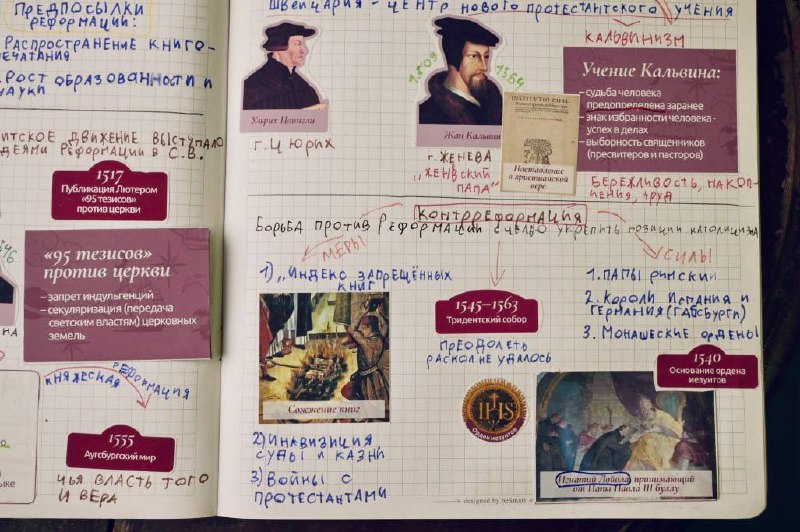 ПРЕДПОСЫЛКИ
РЕФОРМАЦИИ:
РАСПРОСТРАНЕНИЕ КНИГО-
ПЕЧАТАНИЯ
РОСТ ОБРАЗОВАННОСТИ И
НАУКИ
ДВИЖЕНИЕ ВЫСТУПАЛО
ИДЕЯМИ РЕФОРМАЦИИ В С.В.
1517
Публикация Лютером
«95 тезисов»
против церкви
«95 тезисов»
против церкви
– запрет индульгенций
– секуляризация (передача
светским властям) церковных
земель
КНЯЖЕСКАЯ РЕФОРМАЦИЯ
1555
Аугсбургский мир
ЧЬЯ ВЛАСТЬ ТОГО
И ВЕРА
ШВЕЙЦАРИЯ – ЦЕНТР НОВОГО ПРОТЕСТАНТСКОГО УЧЕНИЯ
КАЛЬВИНИЗМ
1509
1564
Ульрих Цвингли
г. ЦЮРИХ
Жан Кальвин
г. ЖЕНЕВА
„ЖЕНЕВСКИЙ
ПАПА"
Наставление
в христианской
вере
Учение Кальвина:
– судьба человека
предопределена заранее
– знак избранности человека -
успех в делах
– выборность священников
(пресвитеров и пасторов)
БЕРЕЖЛИВОСТЬ, НАКОП-
ЛЕНИЯ, ТРУД
КОНТРРЕФОРМАЦИЯ
БОРЬБА ПРОТИВ РЕФОРМАЦИИ С ЦЕЛЬЮ УКРЕПИТЬ ПОЗИЦИИ КАТОЛИЦИЗМА
МЕРЫ
СИЛЫ
1) „ИНДЕКС ЗАПРЕЩЁННЫХ
КНИГ
Сожжение книг
2) ИНКВИЗИЦИЯ
СУДЫ И КАЗНИ
3) ВОЙНЫ С
ПРОТЕСТАНТАМИ
1545–1563
Тридентский собор
ПРЕОДОЛЕТЬ
РАСКОЛ НЕ УДАЛОСЬ
IHS
Орден иезуитов
1. ПАПЫ РИМСКИЙ
2. КОРОЛИ ИСПАНИЯ И
ГЕРМАНИЯ (ГАБСБУРГИ)
3. МОНАШЕСКИЕ ОРДЕНЫ
1540
Основание ордена
иезуитов
Игнатий Лойола, принимающий
от Папы Павла III буллу
designed by beSmart